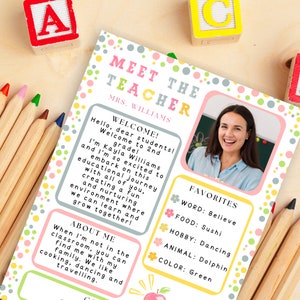 A
C
MEET THE
TEACHER
MRS. WILLIAMS
WELCOME!
Hello, dear students!
Welcome to 2nd
grade!
I'm Kayla Williams
and I'm so excited to
embark on this
educational journey
with you,
creating a fun
and nurturing
environment where
we can learn and
grow together!
FAVORITES
WORD: Believe
FOOD: Sushi
HOBBY: Dancing
ANIMAL: Dolphin
COLOR: Green
ABOUT ME
When I'm not in the
classroom, you can
find me with my
family. We like
cooking, dancing and
travelling.